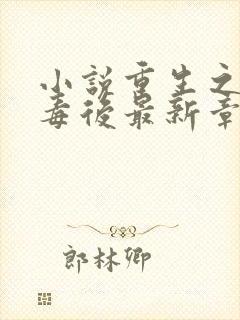 小說重生之
毒後最新章
郎林卿